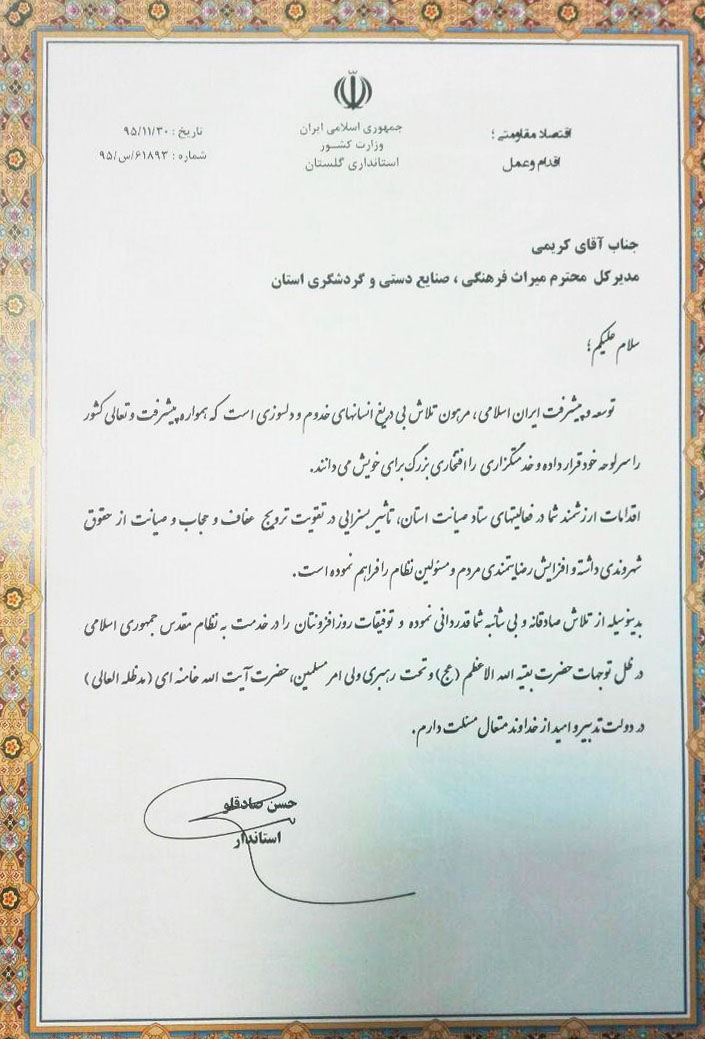 جمهوری اسلامی ایران
وزارت کشور
استانداری گلستان
اقتصاد مقاومتی؛
اقدام وعمل
تاریخ : ۹۵/۱۱/۳۰
شماره : ۶۱۸۹۳/س/۹۵
جناب آقای کریمی
مدیرکل محترم میراث فرهنگی ، صنایع دستی و گردشگری استان
سلام علیکم؛
توسعه و پیشرفت ایران اسلامی، مرهون تلاش بی دریغ انسانهای خدوم و دلسوزی است که همواره پیشرفت و تعالی کشور
را سرلوحه خود قرار داده و خدمتگزاری را افتخاری بزرگ برای خویش می دانند.
اقدامات ارزشمند شما در فعالیتهای ستاد صیانت استان، تأثیر بسزایی در تقویت ترویج عفاف و حجاب و صیانت از حقوق
شهروندی داشته و افزایش رضایتمندی مردم و مسئولین نظام را فراهم نموده است.
بدینوسیله از تلاش صادقانه و بی شائبه شما قدردانی نموده و توفیقات روزافزونتان را در خدمت به نظام مقدس جمهوری اسلامی
در ظل توجهات حضرت بقیه الله الاعظم (عج) و تحت رهبری ولی امر مسلمین، حضرت آیت الله خامنه ای (مدظله العالی)
در دولت تدبیر و امید از خداوند متعال مسئلت دارم.
حسن صادقلو
استاندار